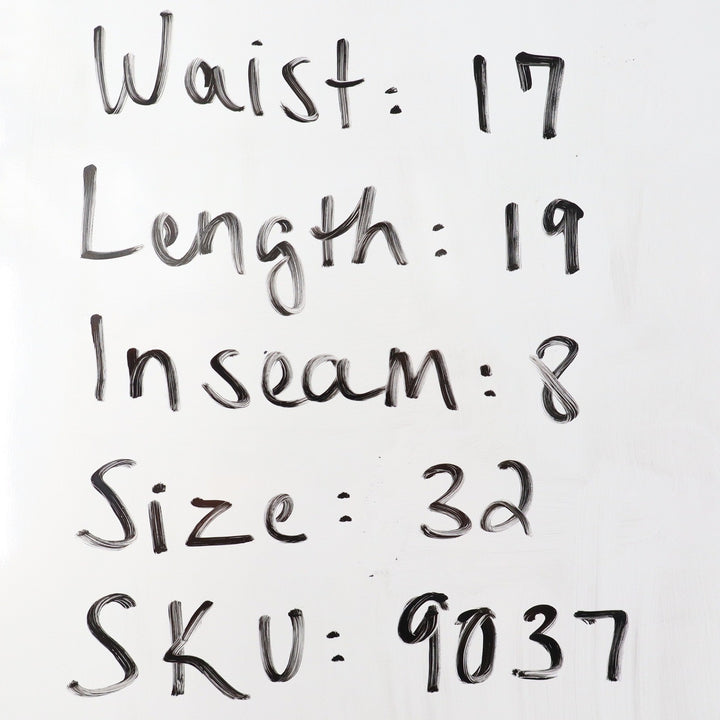 Waist: 17
Length: 19
Inseam: 8
Size: 32
SKU: 9037